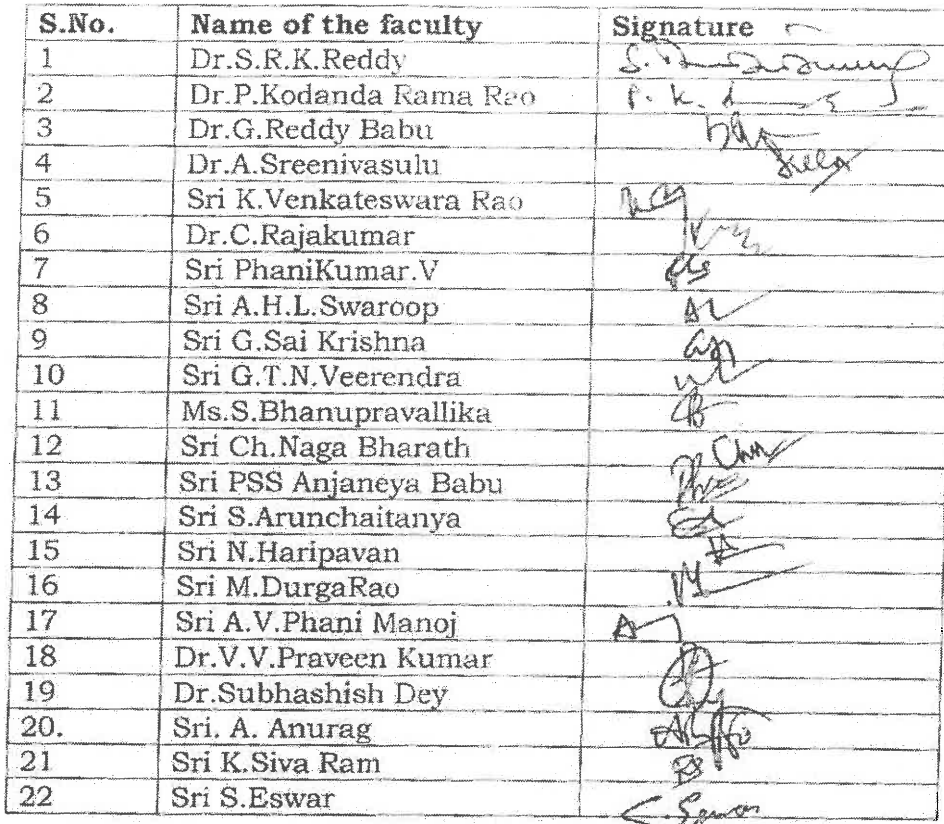 S.No. Name of the faculty Signature
1 Dr.S.R.K.Reddy
2 Dr.P.Kodanda Rama Rao P. K.
3 Dr.G.Reddy Babu
4 Dr.A.Sreenivasulu
5 Sri K.Venkateswara Rao
6 Dr.C.Rajakumar
7 Sri PhaniKumar.V
8 Sri A.H.L.Swaroop
9 Sri G.Sai Krishna
10 Sri G.T.N.Veerendra
11 Ms.S.Bhanupravallika
12 Sri Ch.Naga Bharath
13 Sri PSS Anjaneya Babu
14 Sri S.Arunchaitanya
15 Sri N.Haripavan
16 Sri M.DurgaRao
17 Sri A.V.Phani Manoj
18 Dr.V.V.Praveen Kumar
19 Dr.Subhashish Dey
20. Sri. A. Anurag
21 Sri K.Siva Ram
22 Sri S.Eswar